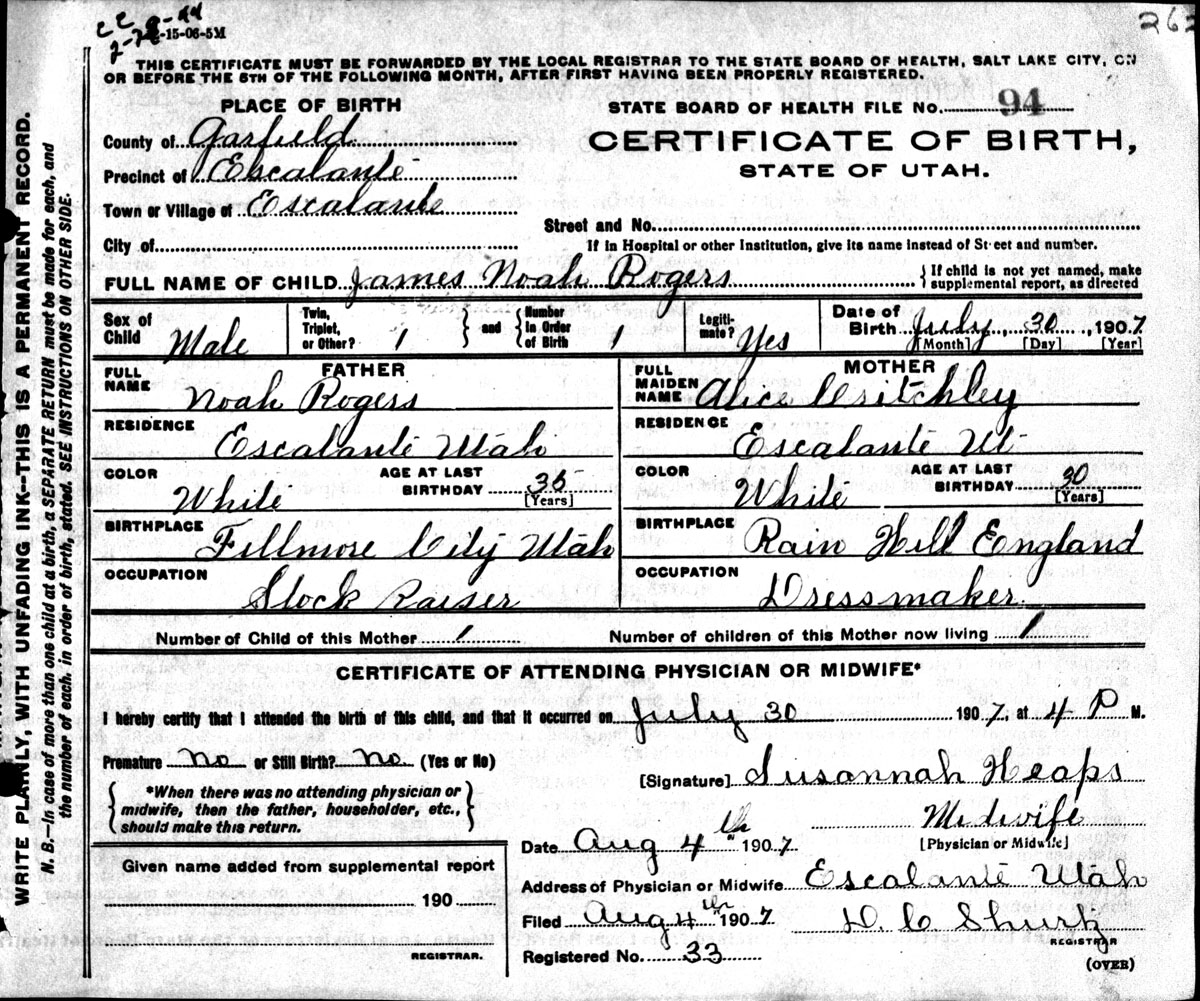 C C 9-44
2-15-06-5M
263
THIS CERTIFICATE MUST BE FORWARDED BY THE LOCAL REGISTRAR TO THE STATE BOARD OF HEALTH, SALT LAKE CITY, ON
OR BEFORE THE 5TH OF THE FOLLOWING MONTH, AFTER FIRST HAVING BEEN PROPERLY REGISTERED.
PLACE OF BIRTH
County of Garfield
Precinct of Escalante
Town or Village of Escalante
City of
STATE BOARD OF HEALTH FILE NO. 94
CERTIFICATE OF BIRTH,
STATE OF UTAH.
Street and No.
If in Hospital or other Institution, give its name instead of Street and number.
FULL NAME OF CHILD James Noah Rogers
If child is not yet named, make
supplemental report, as directed
Sex of Child Male
Twin, Triplet, or Other? 1 and Number In Order of Birth 1
Legitimate? Yes
Date of Birth July 30, 1907
[Month] [Day] [Year]
FATHER
FULL NAME Noah Rogers
RESIDENCE Escalante Utah
COLOR White
AGE AT LAST BIRTHDAY 35 [Years]
BIRTHPLACE Fillmore City Utah
OCCUPATION Stock Raiser
MOTHER
FULL MAIDEN NAME Alice Critchley
RESIDENCE Escalante Ut
COLOR White
AGE AT LAST BIRTHDAY 30 [Years]
BIRTHPLACE Rain Hill England
OCCUPATION Dressmaker
Number of Child of this Mother 1 Number of children of this Mother now living 1
CERTIFICATE OF ATTENDING PHYSICIAN OR MIDWIFE*
I hereby certify that I attended the birth of this child, and that it occurred on July 30 1907, at 4 P M.
Premature No or Still Birth? No (Yes or No)
*When there was no attending physician or
midwife, then the father, householder, etc.,
should make this return.
[Signature] Susannah Heaps
Midwife
[Physician or Midwife]
Date Aug 4th 1907
Address of Physician or Midwife Escalante Utah
Filed Aug 4th 1907
D. C. Shurtz
REGISTRAR
Registered No. 33
(OVER)
Given name added from supplemental report
190
REGISTRAR.
WRITE PLAINLY, WITH UNFADING INK--THIS IS A PERMANENT RECORD.
N. B.--In case of more than one child at a birth, a SEPARATE RETURN must be made for each, and
the number of each, in order of birth, stated. SEE INSTRUCTIONS ON OTHER SIDE.